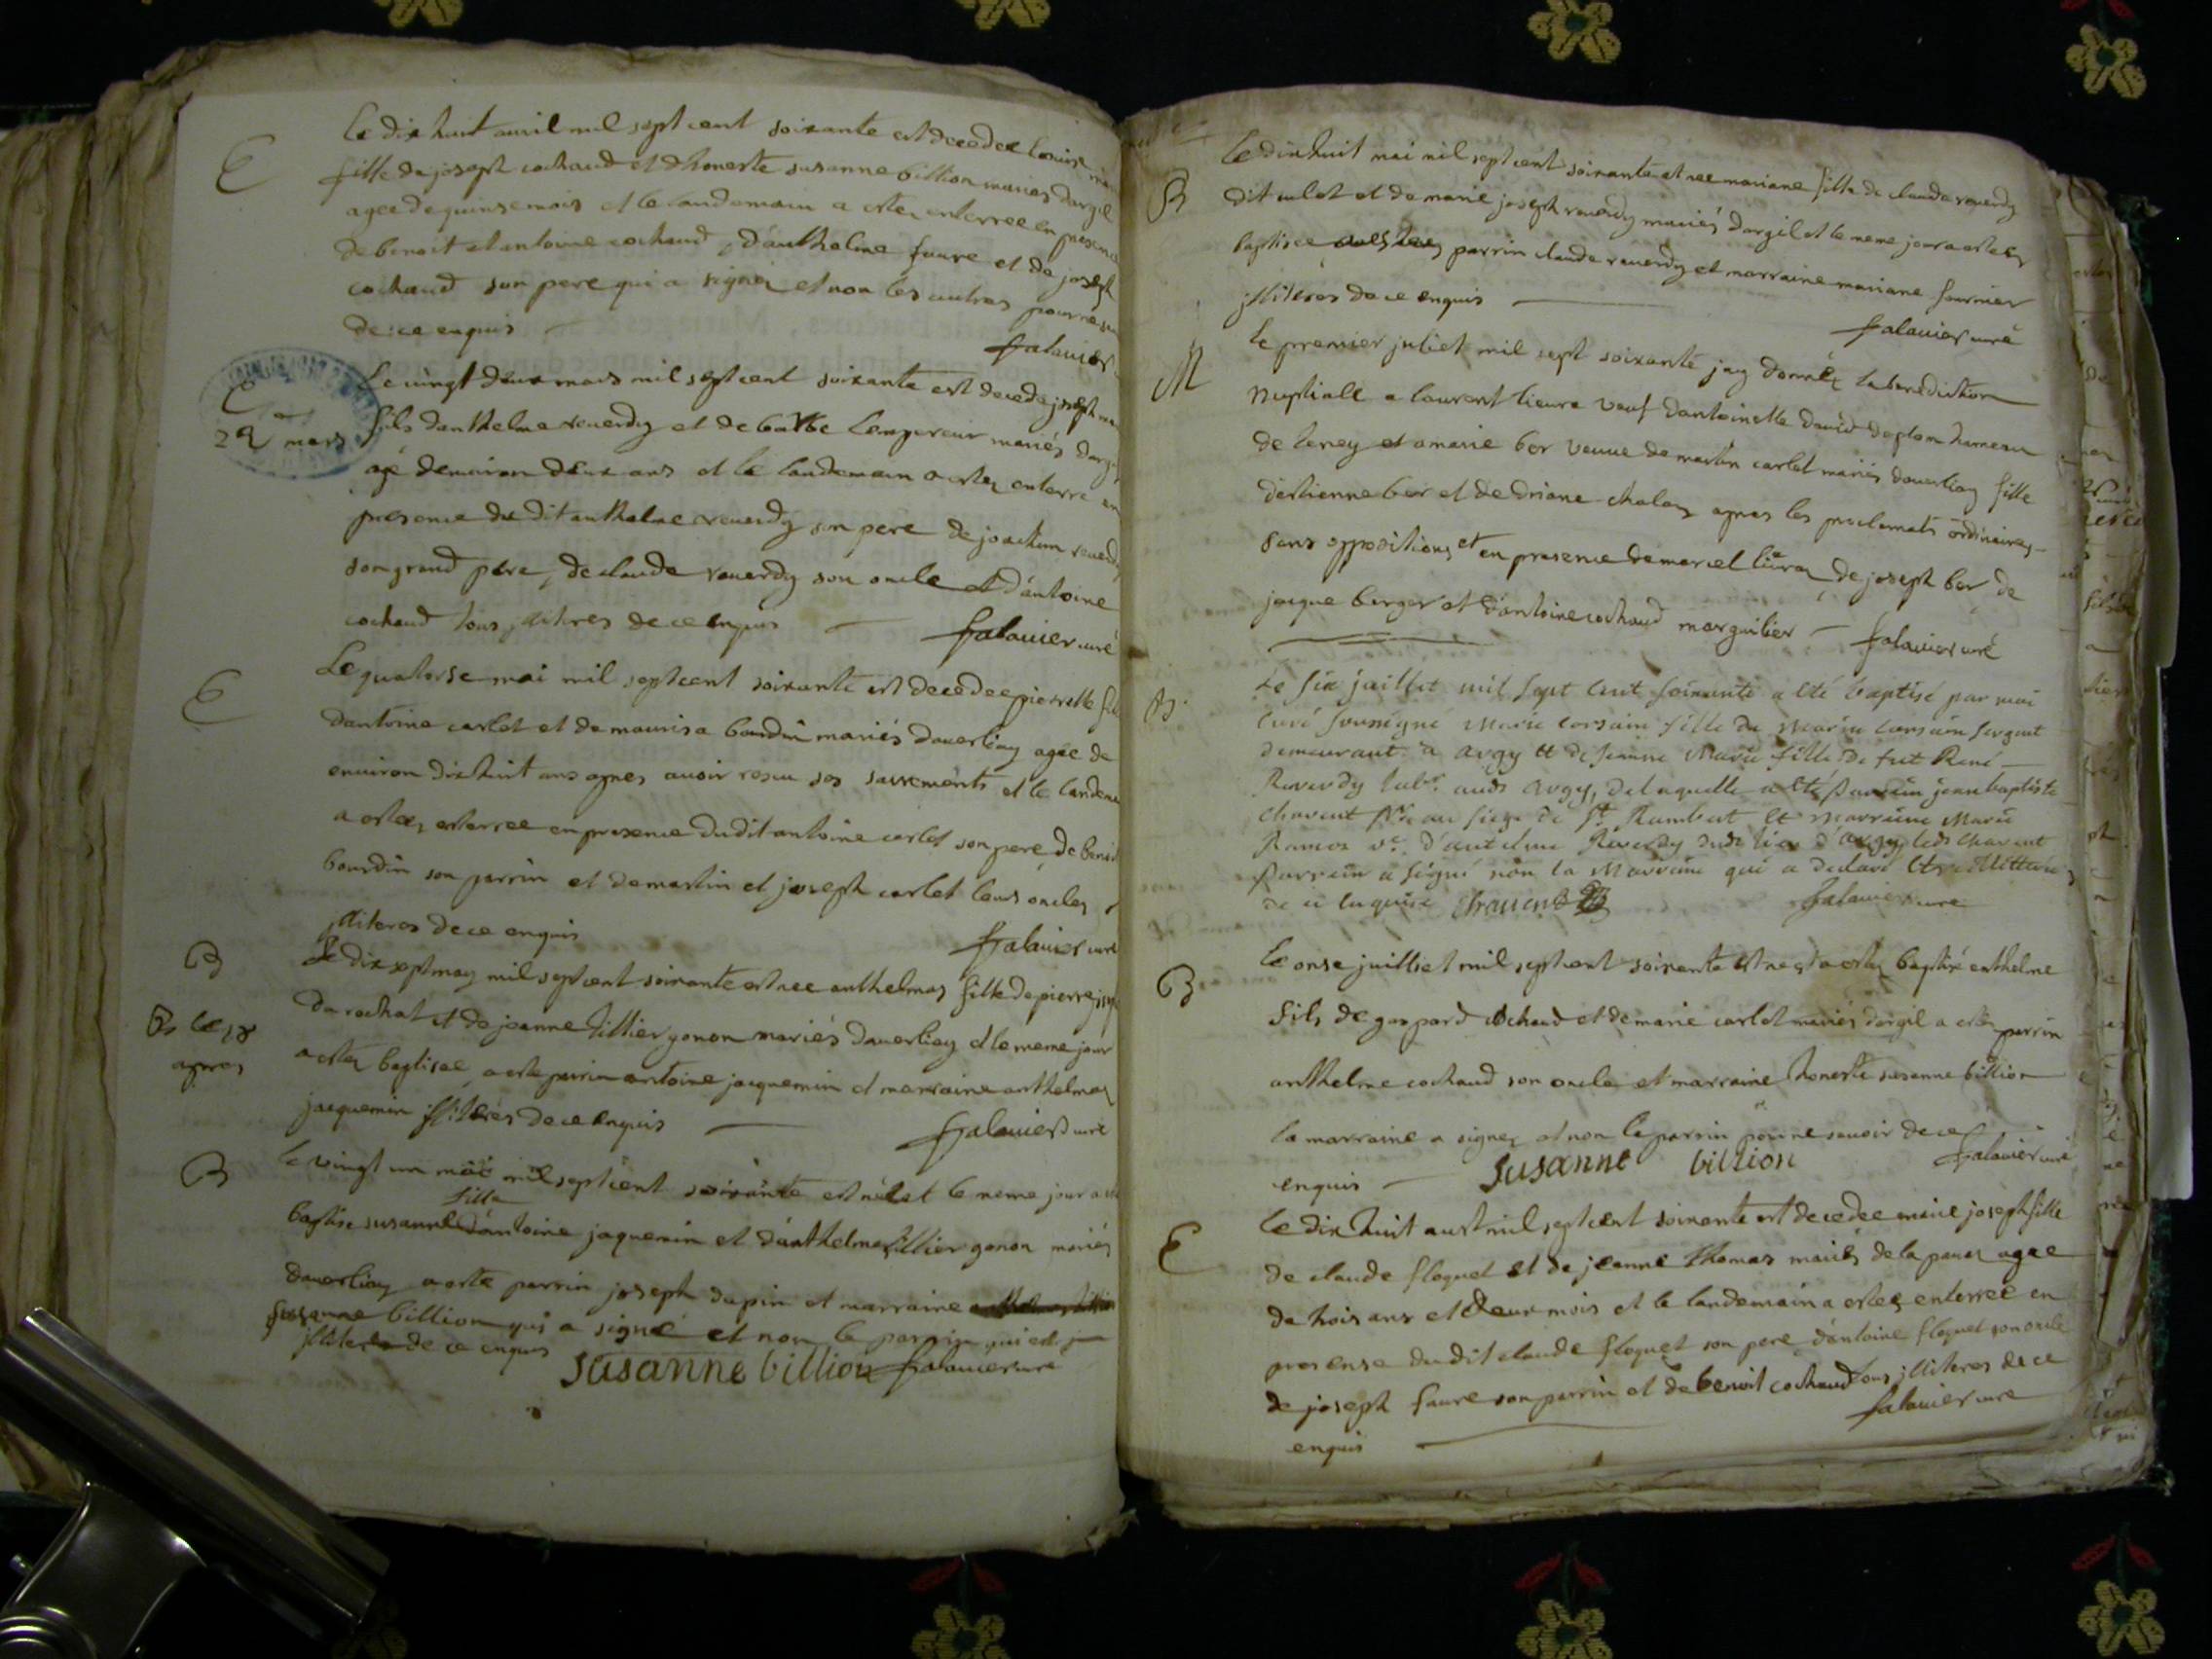 Le dix huit auril mil sept cent soixante est decedee Louise
E
fille de joseph cochaud et dhoneste susanne billion mariés dargil
agee de quinse mois et le landemain a estez enterree en presence
de benoit et antoine cochaud, d'anthelme faure et de joseph
cochaud son pere qui a signez et non les autres pour ne
de ce enquis
falauier
E
22 mars
Le vingt deux mars mil sept cent soixante est decede joseph
fils danthelme reuerdy et de barbe Lempereur mariés
agé denuiron deux ans et le landemain a estez enterré en
presence du dit anthelme reuerdy son pere de joachim reuerdy
son grand pere, de claude reuerdy son oncle et d'antoine
cochaud tous jlliteres de ce enquis
falauier curé
E
Le quatorse mai mil sept cent soixante est decedee pierrette
dantoine carlet et de maurisa bourdin mariés dauerliay agée de
enuiron dix huit ans apres auoir reseu ses sacrements et le
a estez enterree en presence dudit antoine carlet son pere de
bourdin son parrin et de martin et joseph carlet leurs oncles
jlliteres de ce enquis
falauier curé
B
Le dix sept may mil sept cent soixante est nee anthelmaz fille de pierre
B le 18
apres
du rochat et de jeanne tillier gonon mariés dauerliay et le meme jour
a estez baptisee a esté parrin antoine jacquemin et marraine anthelmaz
jacquemin jlliteres de ce enquis
falauier curé
B
Le vingt un mai mil sept cent soixante est née et le meme jour a
fille
baptise susanne dantoine jaquemin et d'anthelmaz tillier gonon mariés
dauerliay a esté parrin joseph dupin et marraine
susanne billion qui a signé et non le parrin qui est
jlliteré de ce enquis
susanne billion falauier curé
Le dix huit mai mil sept cent soixante est nee mariane fille de claude reuerdy
B
dit culet et de marie joseph reuerdy mariés dargil et le meme jour a estez
baptisee parrin claude reuerdy et marraine mariane fournier
jlliteres de ce enquis
falauier curé
M
Le premier juliet mil sept soixante jay donnéz la benediction
nuptiale a laurent lieure veuf dantoinette dauid deplom hameau
de leney et a marie bor veuue de martin carlet mariés dauerliay fille
destienne bor et de driane chalaz apres les proclamats ordinaires
sans oppositions et en presence de marcel de joseph bor de
jaque berger et d'antoine cochaud marguilier
falauier curé
B.
Le six juillet mil sept cent soixante a été baptisé par moi
curé soussigné Marie corsain fille de Marin corsain sergent
demeurant a argy et de Jeanne Marie fille de fut René
Reverdy lab.r audt argy, de laquelle a été parrein jean baptiste
Chavent au siege de St Rambert et marreine Marie
Ramos ve. d'antelme Reverdy dudt lieu d'argy ledt Chavent
parrein a signé non la Marreine qui a declaré etre illitteré
de ce enquise Chavent
falauier curé
B
Le onse juilliet mil sept cent soixante est ne et a estez baptisé anthelme
fils de gaspard cochaud et de marie carlet mariés dargil a estez parrin
anthelme cochaud son oncle et marraine honeste susanne billion
la marraine a signez et non le parrin pour ne sauoir de ce
enquis
susanne billion
falauier curé
E
Le dix huit aust mil sept cent soixante est decedee marie joseph fille
de claude floquet et de jeanne thomas mariés de la panaz agee
de trois ans et deux mois et le landemain a estez enterree en
presense du dit claude floquet son pere, d'antoine floquet son oncle
de joseph faure son parrin et de benoit cochaud tous jlliteres de ce
enquis
falauier curé